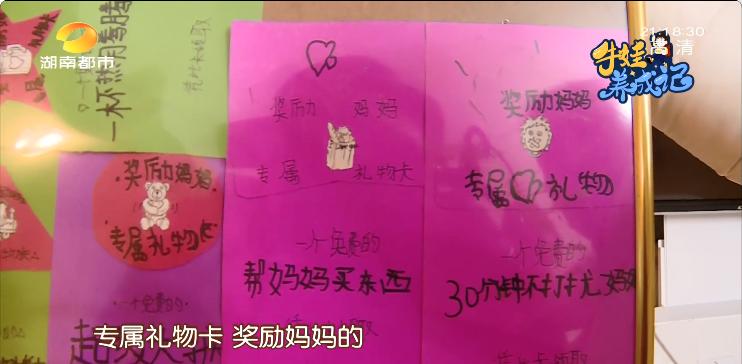 湖南都市
21:18:30
高清
牛娃
养成记
一杯热腾腾
凭此卡领取
奖励妈妈
专属礼物
奖励 妈妈
专属 礼物卡
一个免费的
帮妈妈买东西
奖励妈妈
专属 礼物
一个免费的
30分钟不打扰妈妈
一个免费的
专属礼物卡 奖励妈妈的